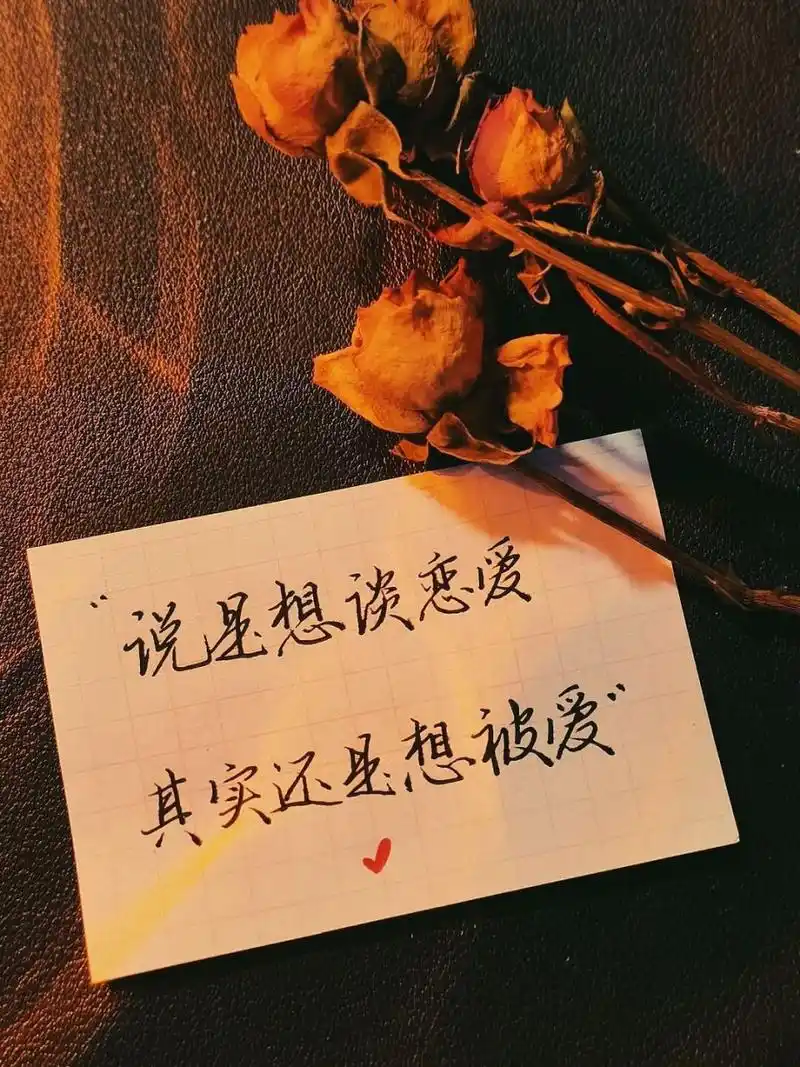 “说是想谈恋爱
其实还是想被爱”